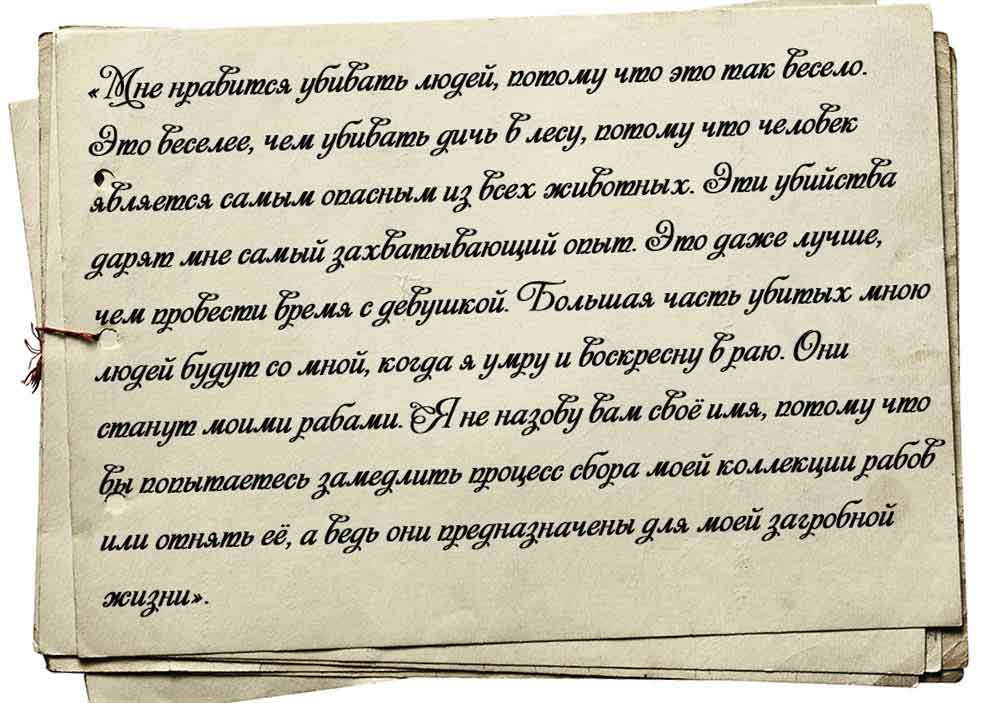 «Мне нравится убивать людей, потому что это так весело.
Это веселее, чем убивать дичь в лесу, потому что человек
является самым опасным из всех животных. Эти убийства
дарят мне самый захватывающий опыт. Это даже лучше,
чем провести время с девушкой. Большая часть убитых мною
людей будут со мной, когда я умру и воскресну в раю. Они
станут моими рабами. Я не назову вам своё имя, потому что
вы попытаетесь замедлить процесс сбора моей коллекции рабов
или отнять её, а ведь они предназначены для моей загробной
жизни».